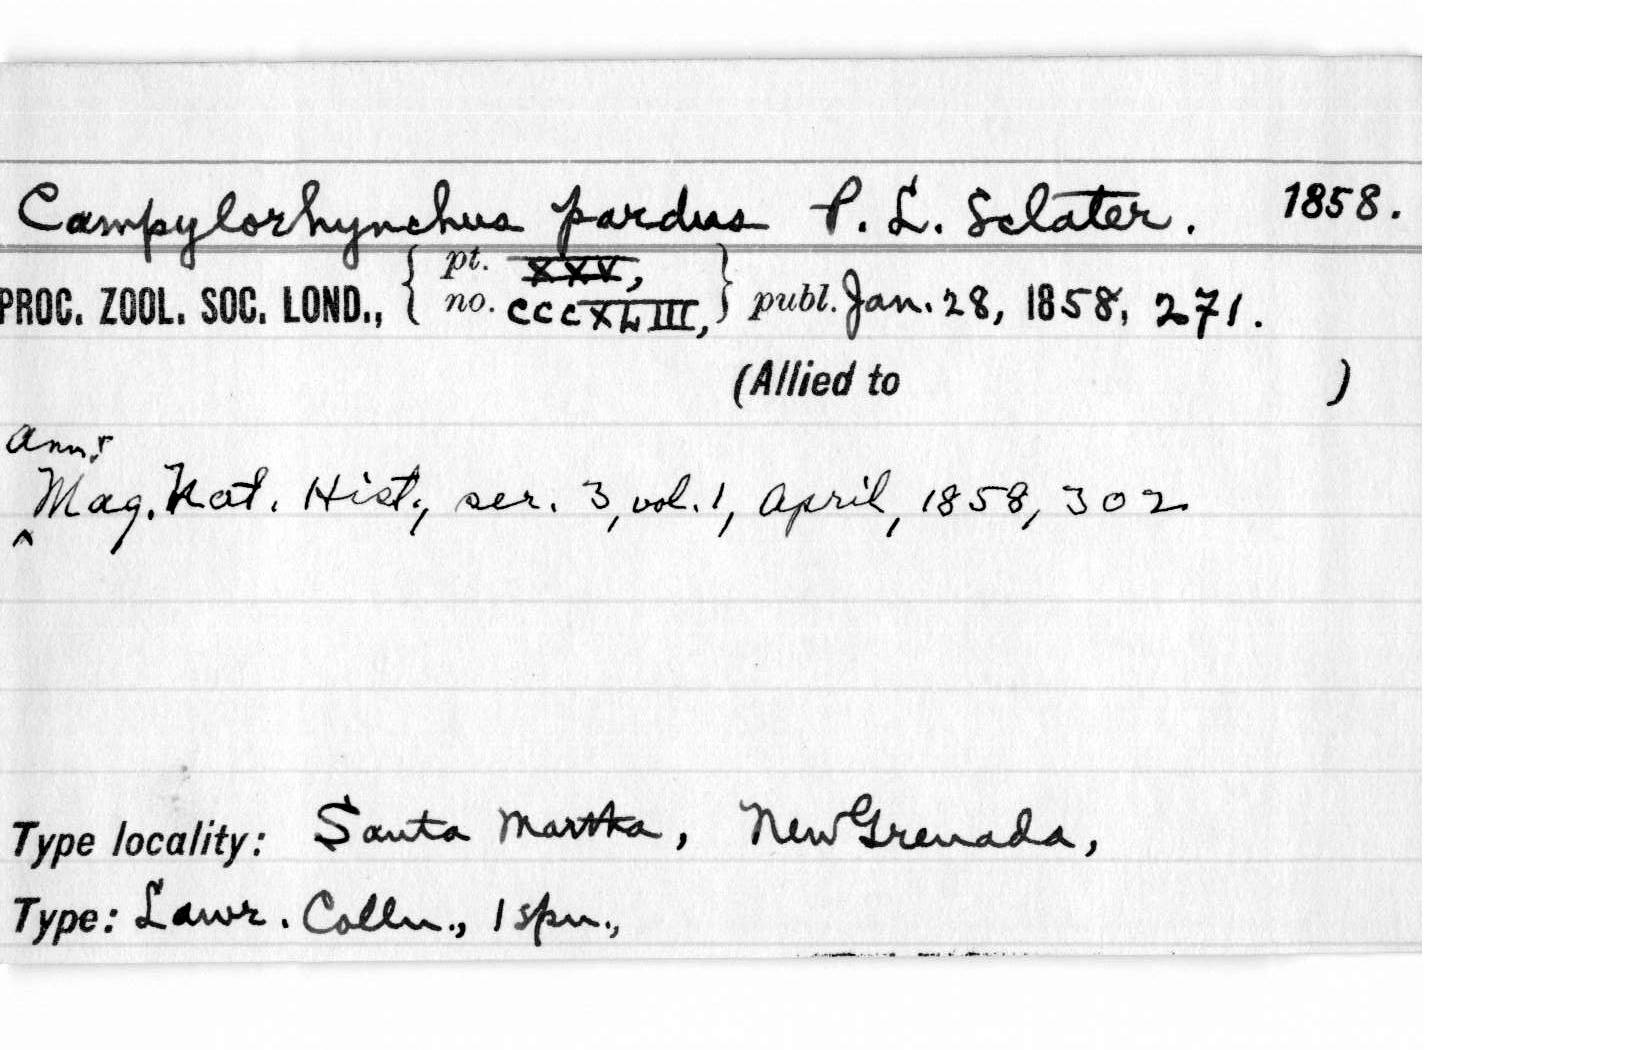 Campylorhynchus pardus P. L. Sclater. 1858.
pt. XXV,
PROC. ZOOL. SOC. LOND., { no. CCCXLIII, } publ. Jan. 28, 1858, 271.
(Allied to )
Ann. &
Mag. Nat. Hist., ser. 3, vol. 1, April, 1858, 302
^
Type locality: Santa Martha, New Grenada,
Type: Lawr. Colln., 1 spn.,